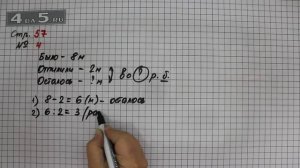 4ДЗ.РУ
Стр. 57
№ 4
Было – 8 м
Отпилили – 2 м
Осталось – ? м
в ? р. б.
1) 8 - 2 = 6 (м) - осталось
2) 6 : 2 = 3 (ра